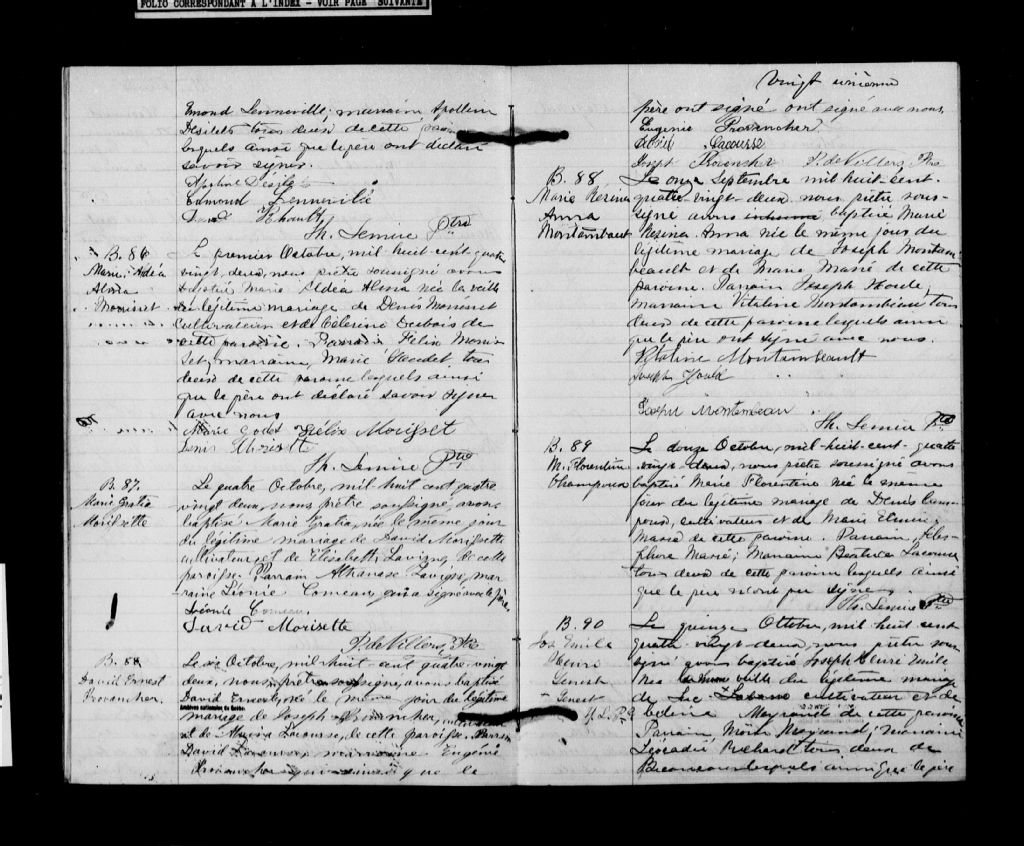 FOLIO CORRESPONDANT A L'INDEX - VOIR PAGE SUIVANTE
Emond Lenneville; marraine Apolline
Désilets tous deux de cette
lesquels ainsi que le père ont déclaré
savoir signer.
Edmond Lenneville
Th. Lemire Ptre
B. 86
Marie Aldéa
Alma
Morisset
Le premier Octobre, mil-huit-cent-quatre
vingt, deux, nous prêtre soussigné avons
baptisé Marie Aldéa Alma née la veille
du légitime mariage de Denis Morisset
cultivateur et de Célerine Dubois de
cette paroisse. Parrain Félix Moris
set, marraine, Marie Gaudet tous
deux de cette paroisse lesquels ainsi
que le père ont déclaré savoir signer
avec nous
Marie Godet Félix Morisset
Denis Morisette
Th. Lemire Ptre
B. 87.
Marie Gratia
Morissette
Le quatre Octobre, mil huit cent quatre
vingt deux, nous prêtre soussigné, avons
baptisé Marie Gratia, née le même jour
du légitime mariage de David Morissette
cultivateur et de Elisabeth Lavigne de cette
paroisse. Parrain Athanase Lavigne, mar
raine Léonie Comeau qui a signé avec le père.
Léonie Comeau
David Morisette
P. de Villers, Ptre
B. 88
David Ernest
Provancher.
Le six Octobre, mil huit cent quatre-vingt
deux, nous prêtre soussigné, avons baptisé
David Ernest, né le même jour du légitime
Archives nationales du Québec
mariage de Joseph Provancher,
et de Lacourse, de cette paroisse. Parrain
David marraine Eugénie
Provancher qui que le
Vingt unième
père ont signé ont signé avec nous.
Eugenie Provencher
David Lacourse
Joseph Provencher P. de Villers, Ptre
B. 88
Marie Résina
Anna
Montambault
Le onze Septembre mil huit-cent-
quatre vingt-deux nous prêtre sous-
signé avons baptisé Marie
Résina Anna née le même jour du
légitime mariage de Joseph Montam
beault et de Marie Massé de cette
paroisse. Parrain Joseph Houle,
marraine Vitaline Montambeau tous
deux de cette paroisse lesquels ainsi
que le père ont signé avec nous.
Vitaline Montambeault
Joseph Hould
Joseph Montembeau
Th. Lemire Ptre
B. 89
M. Florentine
Champoux
Le douze Octobre, mil-huit-cent-quatre
vingt-deux, nous prêtre soussigné avons
baptisé Marie Florentine née le même
jour du légitime mariage de Denis Cham
poux, cultivateur et de Marie
Massé de cette paroisse. Parrain,
Massé; Marraine Lacourse
tous deux de cette paroisse lesquels ainsi
que le père n'ont pu signer
Th. Lemire Ptre
B. 90
Jos Emile
Henri
Genest
Genest
Le quinze Octobre, mil huit cent
quatre vingt-deux, nous prêtre sous
signé avons baptisé Joseph Henri Emile
née la veille du légitime mariage
de cultivateur et de
Mayrand de cette paroisse
Parrain, Moïse Mayrand; Marraine
Léocadie Richard tous deux de
lesquels ainsi que le père